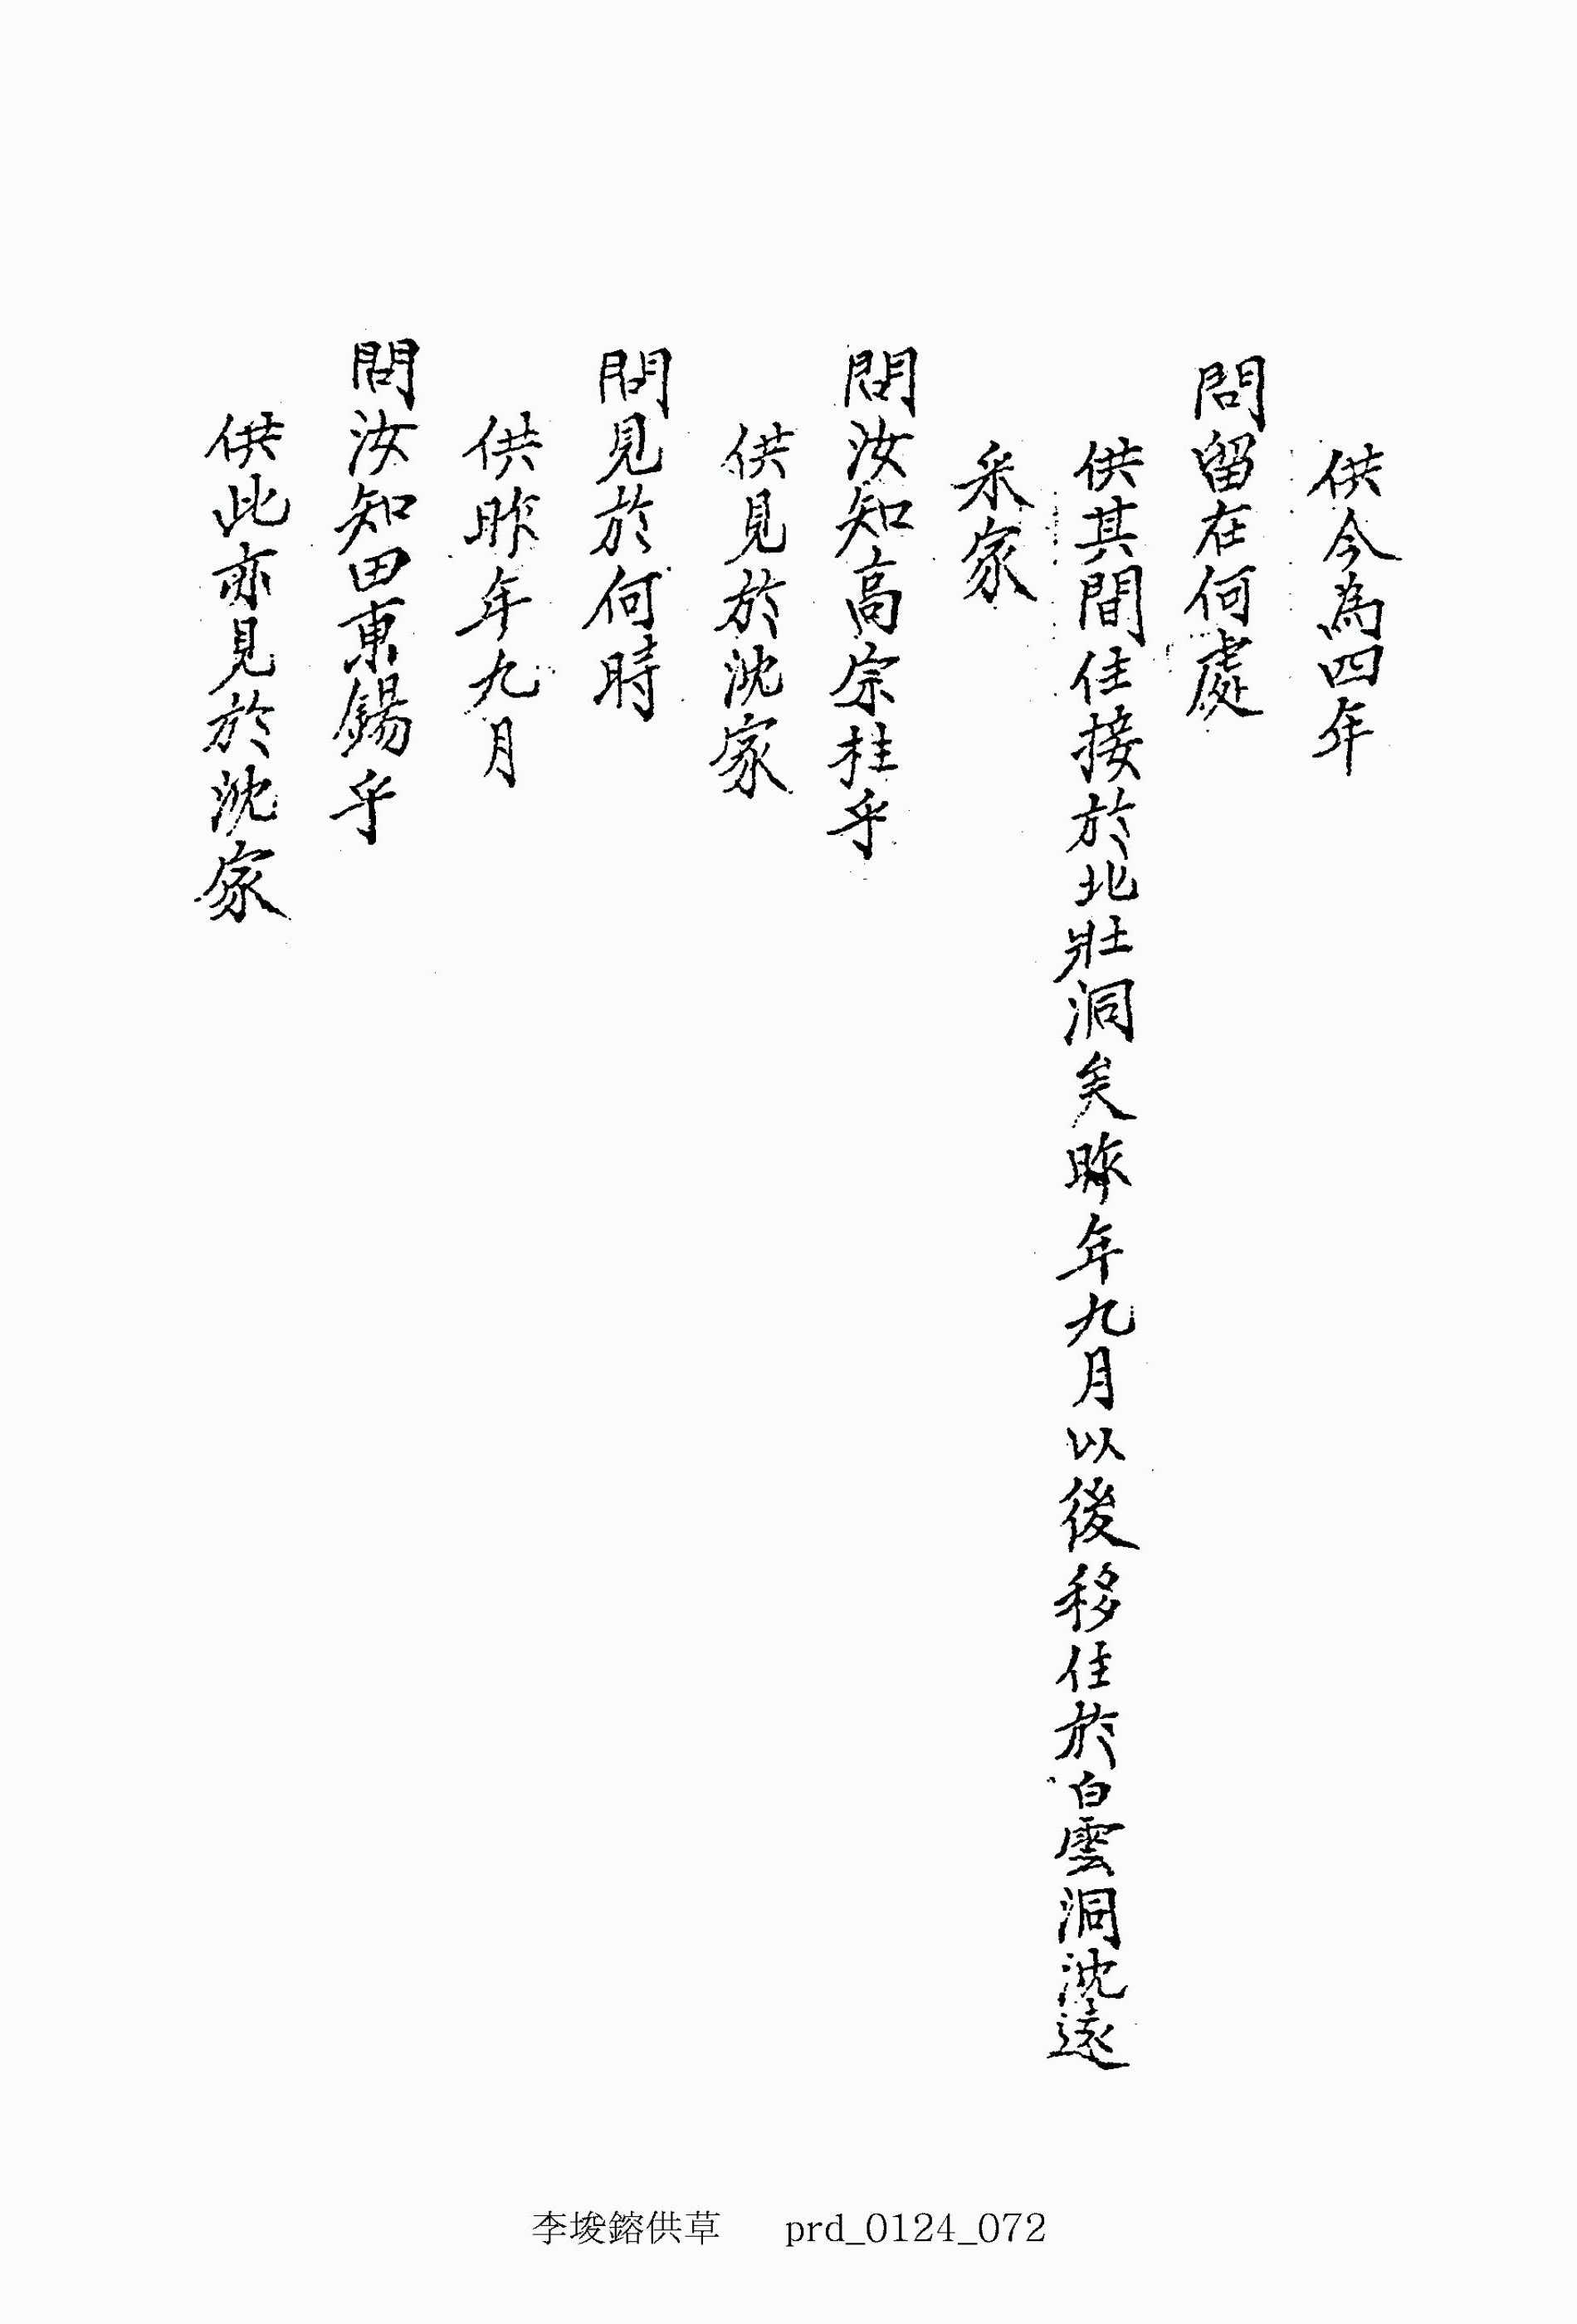 供今為四年
問留在何處
供其間住接於北壯洞矣昨年九月以後移住於白雲洞沈遠
采家
問汝知高宗柱乎
供見於沈家
問見於何時
供昨年九月
問汝知田東錫乎
供此亦見於沈家
李埈鎔供草 prd_0124_072